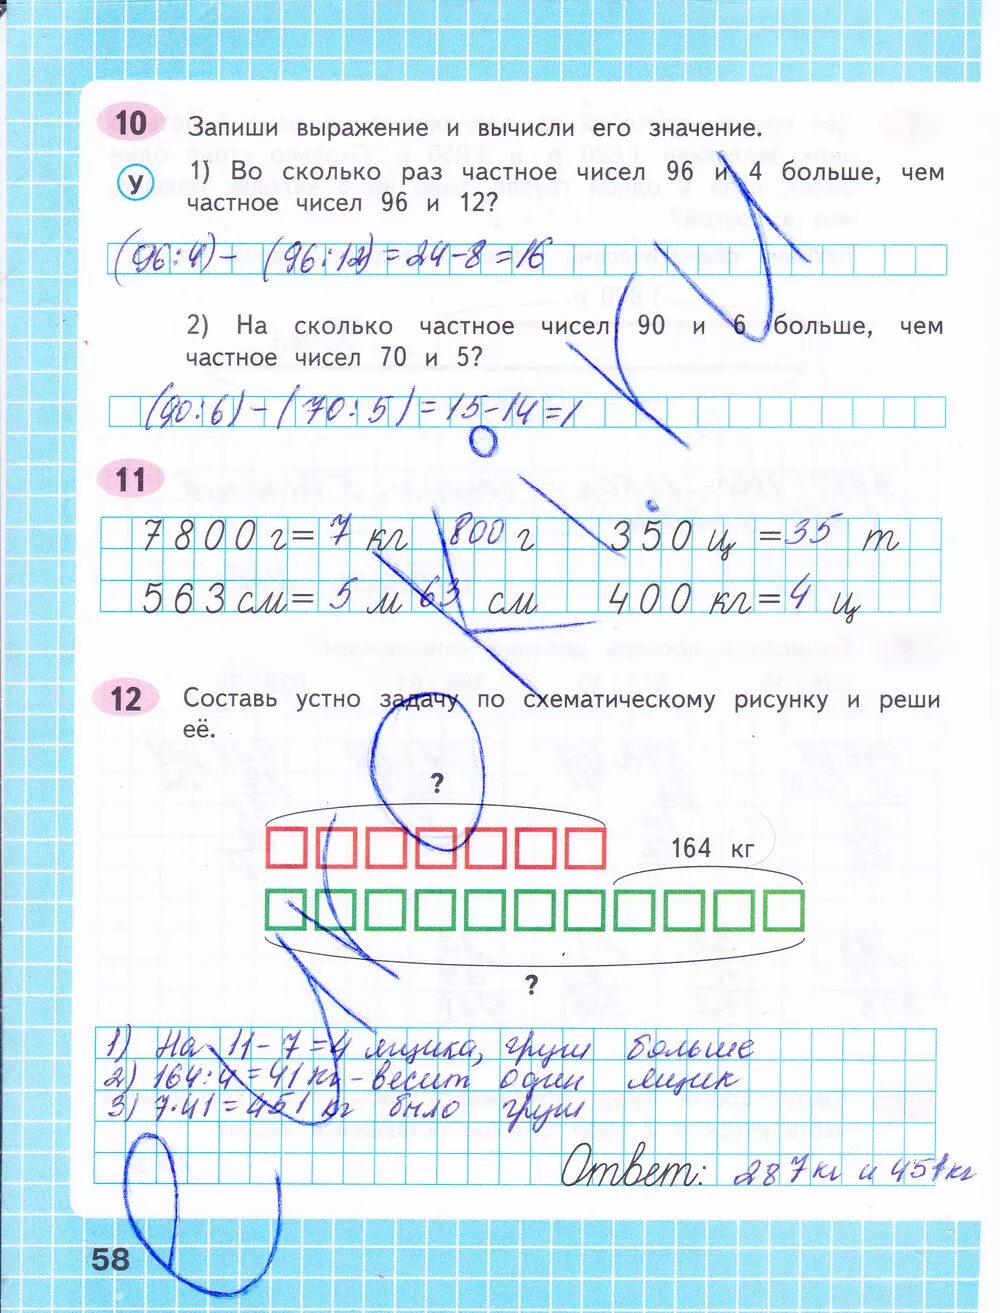 10
Запиши выражение и вычисли его значение.
у
1) Во сколько раз частное чисел 96 и 4 больше, чем
частное чисел 96 и 12?
(96:4) - (96:12) = 24-8 = 16
2) На сколько частное чисел 90 и 6 больше, чем
частное чисел 70 и 5?
(90:6) - (70:5) = 15-14 = 1
11
7800 г = 7 кг 800 г 350 ц = 35 т
563 см = 5 м 63 см 400 кг = 4 ц
12
Составь устно задачу по схематическому рисунку и реши
её.
?
164 кг
?
1) На 11-7=4 ящика, груш больше
2) 164:4=41 кг - весит один ящик
3) 7·41=451 кг было груш
Ответ: 287 кг и 451 кг
58